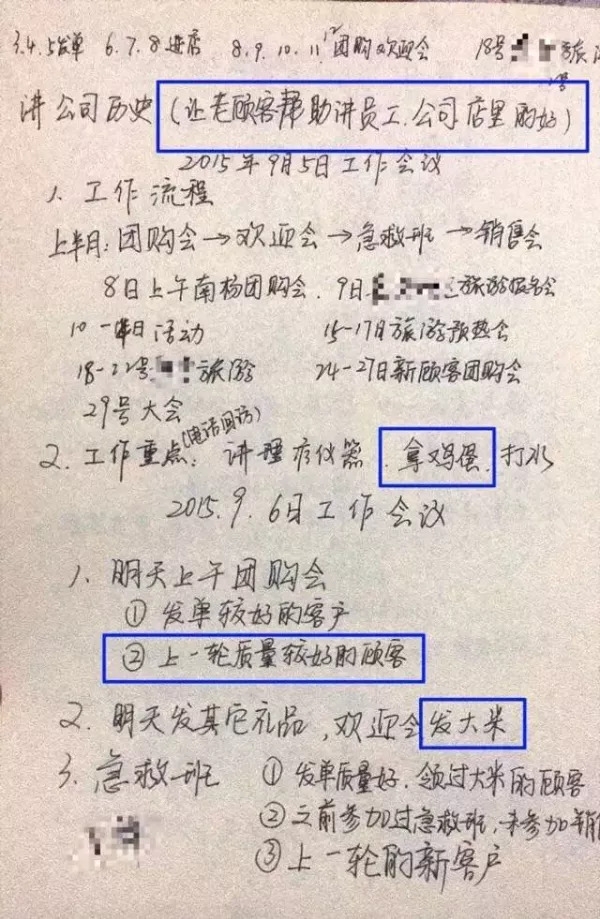 3.4.5发单 6.7.8进店 8.9.10.11.12团购欢迎会 18号 旅
讲公司历史(让老顾客帮助讲员工.公司店里的好)
2015年9月5日工作会议
1. 工作流程
上半月:团购会→欢迎会→急救班→销售会
8日上午南杨团购会. 9日 旅游报名会
10-14日活动 15-17日旅游预热会
18-22号 旅游 24-27日新顾客团购会
29号大会
(电话回访)
2. 工作重点:讲理疗仪器.拿鸡蛋.打水
2015.9.6日工作会议
1. 明天上午团购会
① 发单较好的客户
② 上一轮质量较好的顾客
2. 明天发其它礼品,欢迎会发大米
3. 急救班 ① 发单质量好.领过大米的顾客
② 之前参加过急救班,未参加销
③ 上一轮的新客户